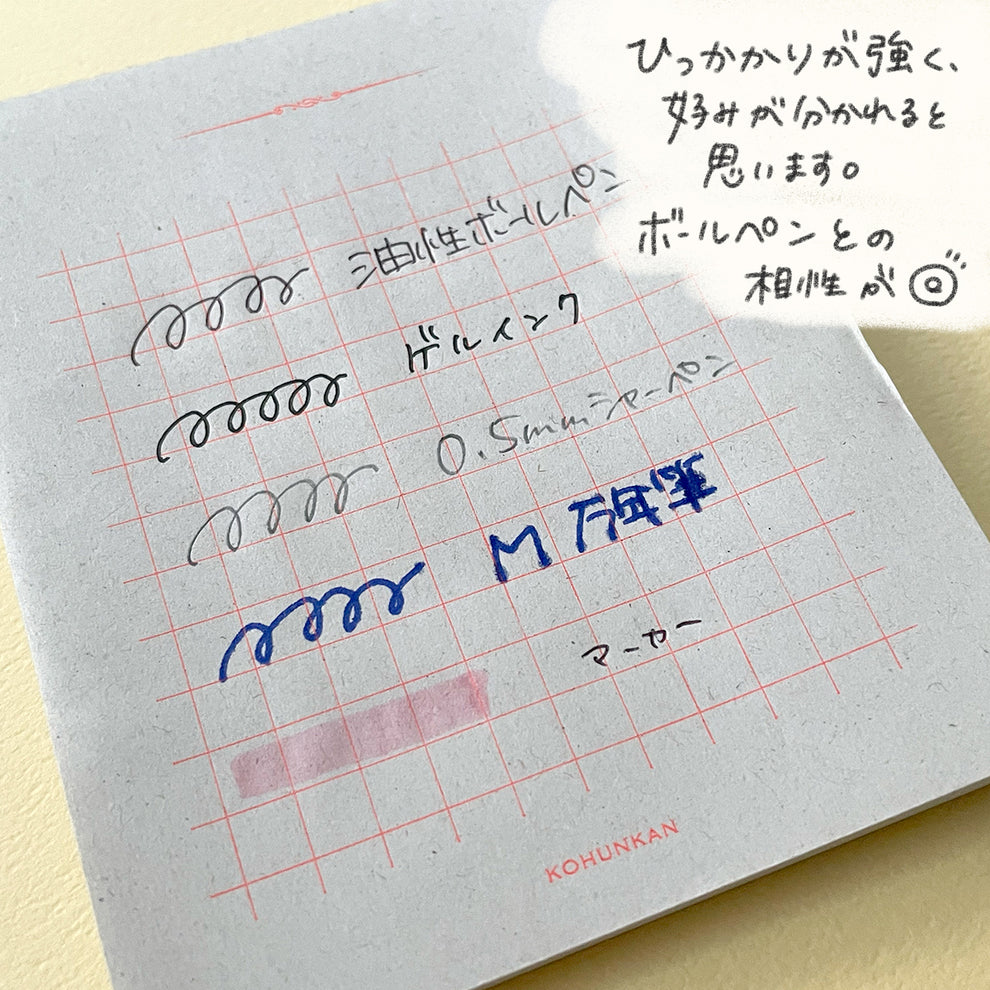 ひっかかりが強く、
好みが分かれると
思います。
ボールペンとの
相性が◎
油性ボールペン
ゲルインク
0.5mmシャーペン
M 万年筆
マーカー
KOHUNKAN